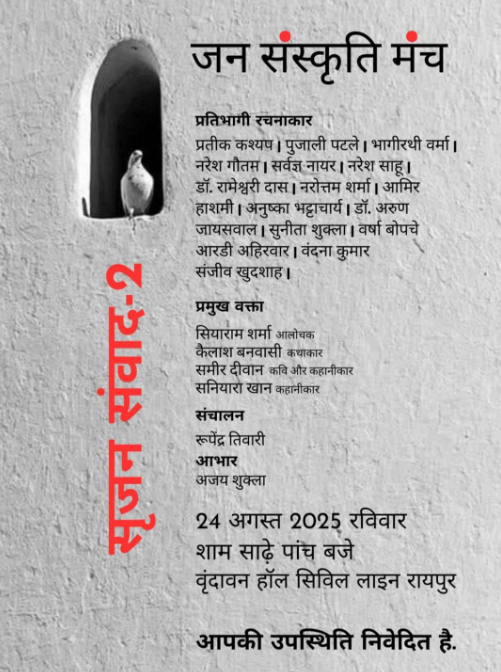 जन संस्कृति मंच
प्रतिभागी रचनाकार
प्रतीक कश्यप | पुजाली पटले | भागीरथी वर्मा |
नरेश गौतम | सर्वज्ञ नायर | नरेश साहू |
डॉ. रामेश्वरी दास | नरोत्तम शर्मा | आमिर
हाशमी | अनुष्का भट्टाचार्य | डॉ. अरुण
जायसवाल | सुनीता शुक्ला | वर्षा बोपचे
आरडी अहिरवार | वंदना कुमार
संजीव खुदशाह |
प्रमुख वक्ता
सियाराम शर्मा आलोचक
कैलाश बनवासी कथाकार
समीर दीवान कवि और कहानीकार
सनियारा खान कहानीकार
संचालन
रूपेंद्र तिवारी
आभार
अजय शुक्ला
24 अगस्त 2025 रविवार
शाम साढ़े पांच बजे
वृंदावन हॉल सिविल लाइन रायपुर
आपकी उपस्थिति निवेदित है.
सृजन संवाद-2